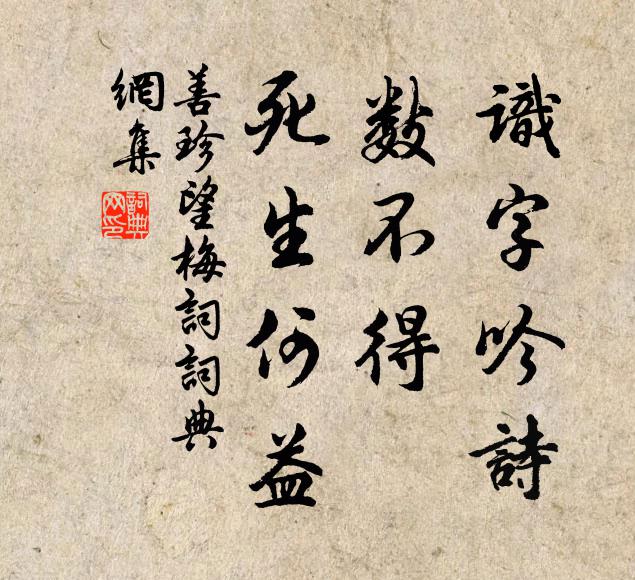 識字吟詩
數不得
死生何益
善珍望梅詞詞典
網集
詞典
网印